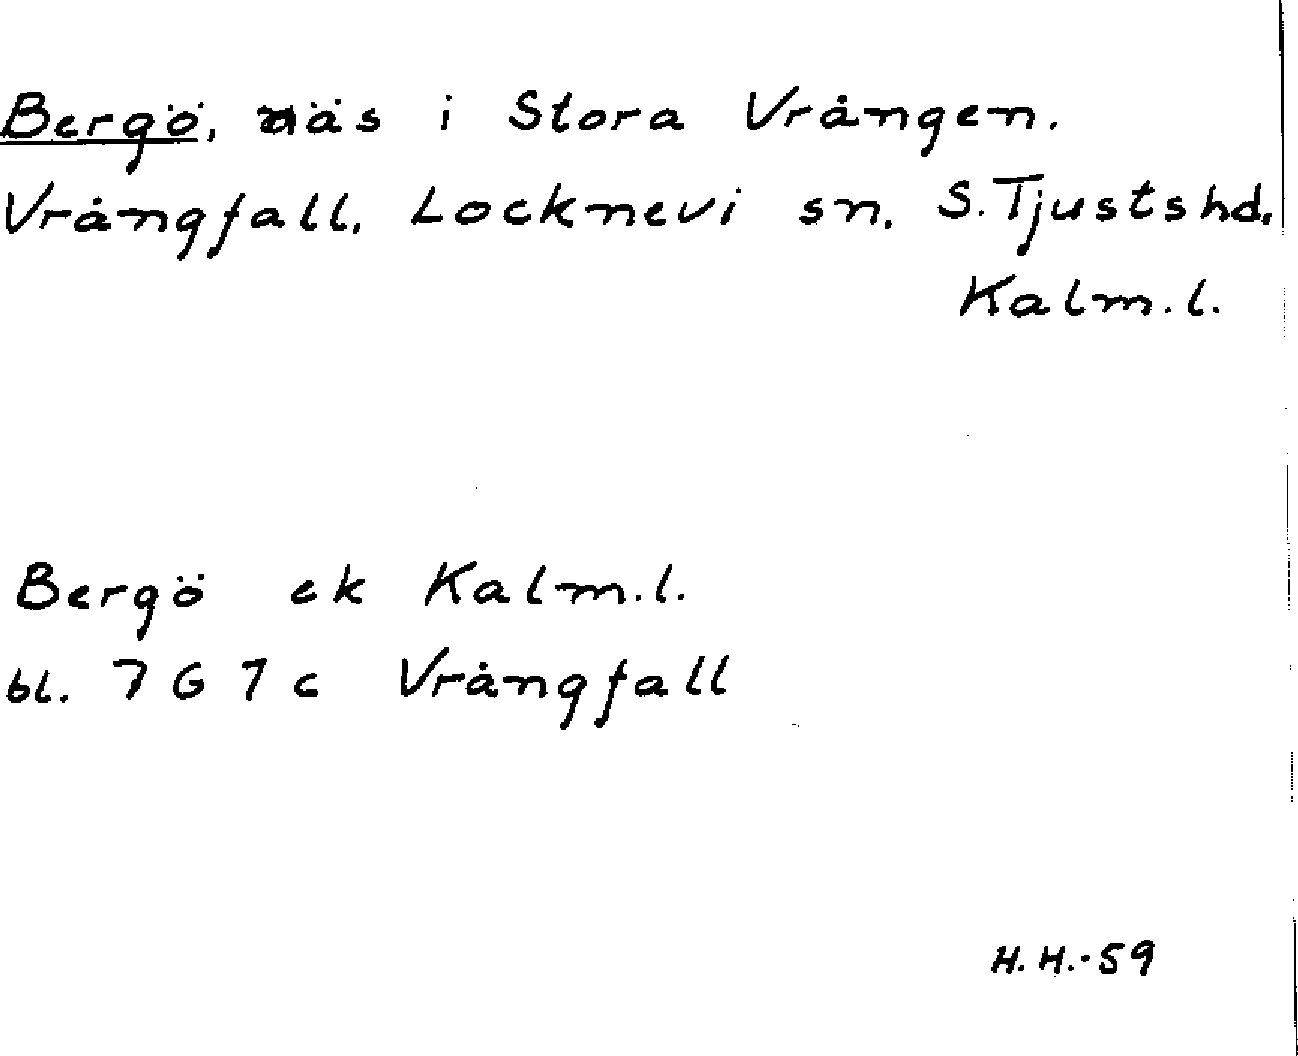 Bergö, näs i Stora Vrången.
Vrångfall, Locknevi sn, S. Tjusts hd,
Kalm. l.
Bergö ek Kalm. l.
bl. 7 G 7 c Vrångfall
H. H. - 59